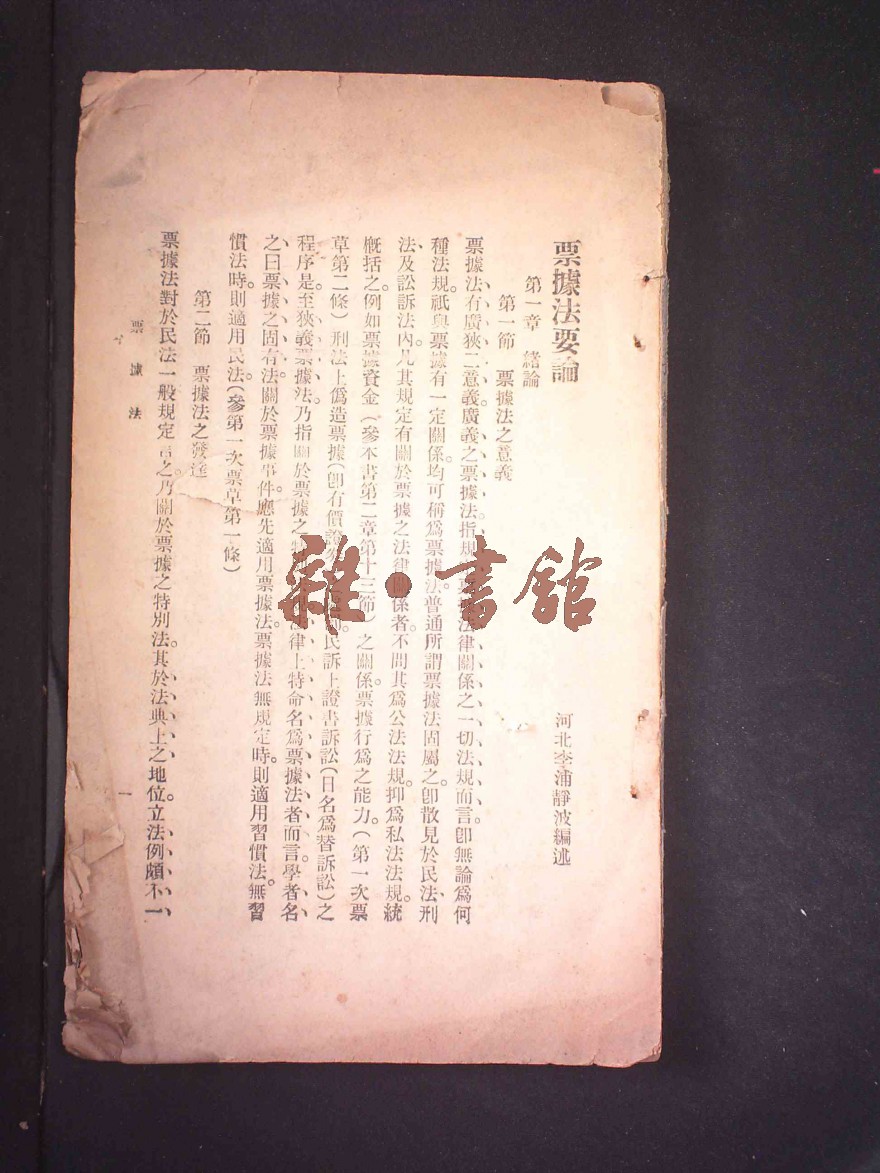 票據法要論
河北李浦靜波編述
第一章　緒論
第一節　票據法之意義
票據法有廣狹二意義。廣義之票據法指規定票據法律關係之一切法規而言。卽無論爲何
種法規。祇與票據有一定關係。均可稱爲票據法。普通所謂票據法固屬之。卽散見於民法刑
法及訟訴法內凡其規定有關於票據之法律關係者。不問其爲公法法規。抑爲私法法規。統
槪括之。例如票據資金（參本書第二章第十三節）之關係。票據行爲之能力（第一次票
草第二條）刑法上僞造票據（卽有價證券）民訴上證書訴訟（日名爲替訴訟）之
程序是。至狹義票據法。乃指關於票據之特別法律上特命名爲票據法者而言。學者名
之曰票據之固有法。關於票據事件。應先適用票據法。票據法無規定時。則適用習慣法。無習
慣法時。則適用民法。（參第一次票草第一條）
第二節　票據法之發達
票據法對於民法一般規定言之。乃關於票據之特別法。其於法典上之地位。立法例頗不一
票據法
一
雜·書館